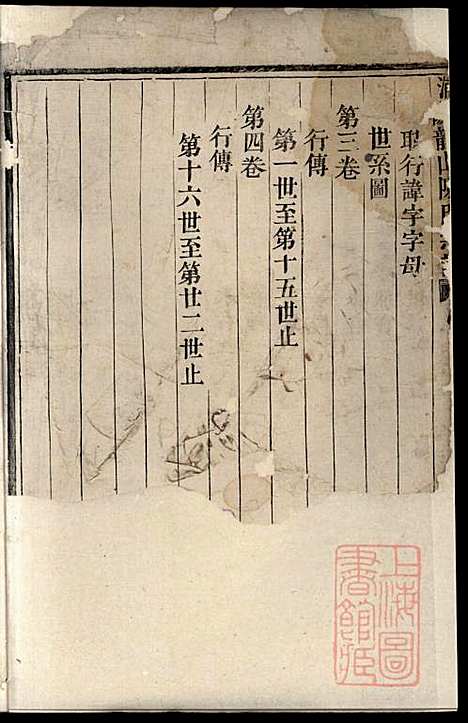 龍山陳氏
聯行諱字字母
世系圖
第三卷
行傳
第一世至第十五世止
第四卷
行傳
第十六世至第廿二世止
上海圖
書館藏